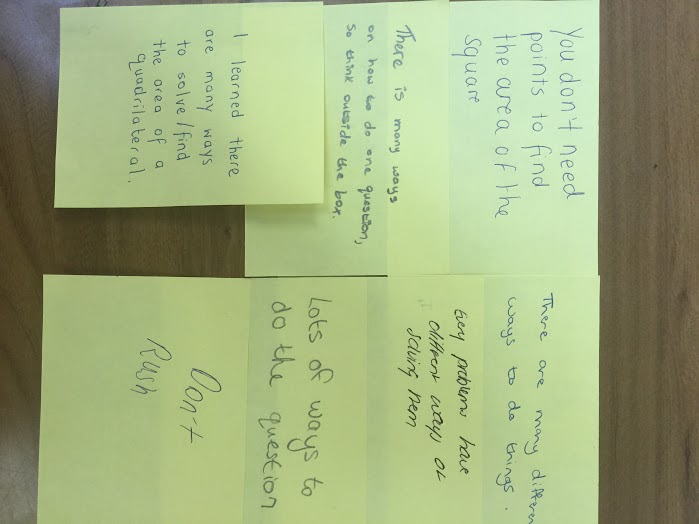 You don't need
points to find
the area of the
square
There is many ways
on how to do one question,
so think outside the box.
I learned there
are many ways
to solve/find
the area of a
quadrilateral.
There are many differen
ways to do things.
Every problems have
different ways of
solving them
Lots of ways to
do the question
Don't
Rush